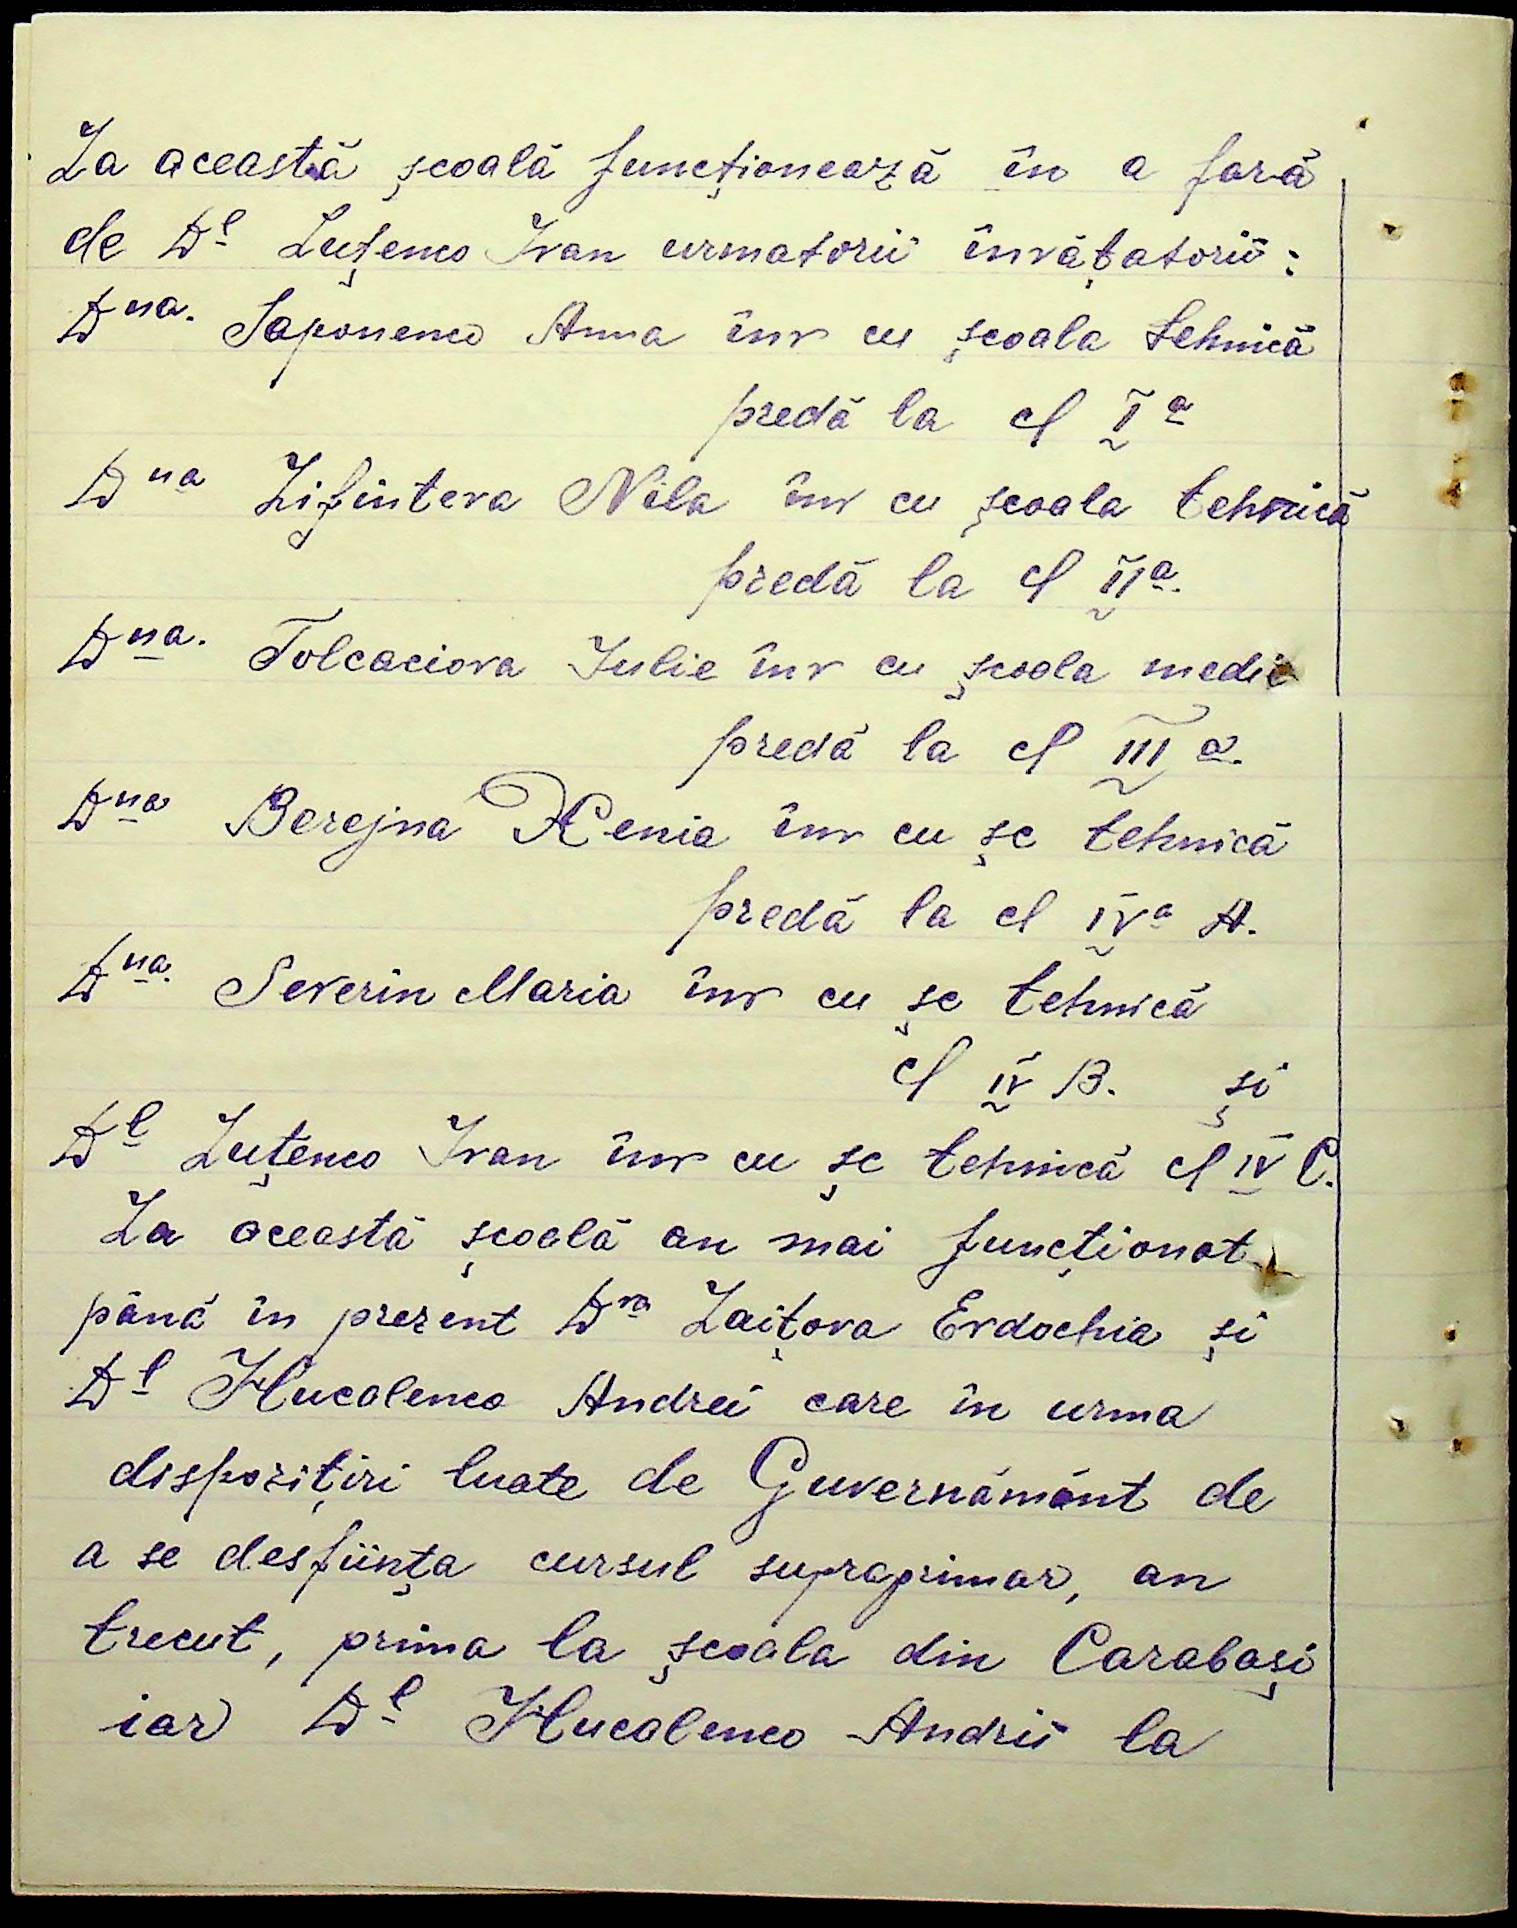 La această școală funcționează în a fară
de D^l Luțenco Ivan urmatorii învățatorii:
D^na. Saponenco Anna înv cu școala tehnică
predă la cl I^a
D^na Lifinteva Nila înv cu școala tehnică
predă la cl II^a.
D^na. Tolcaciova Iulie înv cu școala medie
predă la cl III a.
D^na Berejna Xenia înv cu șc tehnică
predă la cl IV^a A.
D^na. Severin Maria înv cu șc tehnică
cl IV B. și
D^l Luțenco Ivan înv cu șc tehnică cl IV C.
La această școală au mai funcționat
până în prezent D^na Zaițova Evdochia și
D^l Hucalenco Andrei care în urma
dispozițiri luate de Guvernământ de
a se desființa cursul supraprimar, au
trecut, prima la școala din Carabași
iar D^l Hucalenco Andrii la